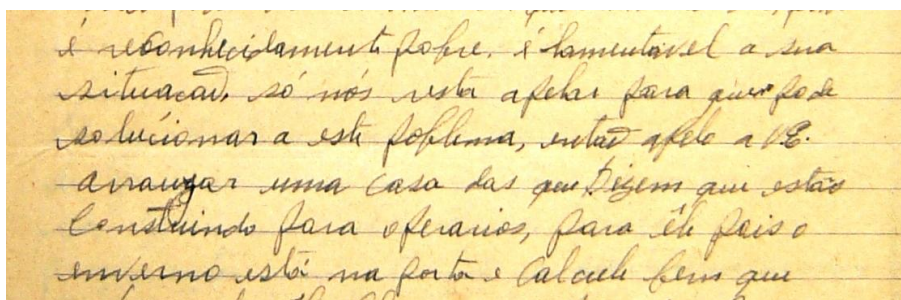 é reconhecidamente pobre. é lamentavel a sua
situacaõ, só nós resta apelar para quem pode
solucionar a este poblema, entaõ apelo a VE.
arranjar uma casa das que Dizem que estão
Construindo para operarios, para êle pois o
inverno está na porta e Calcule bem que